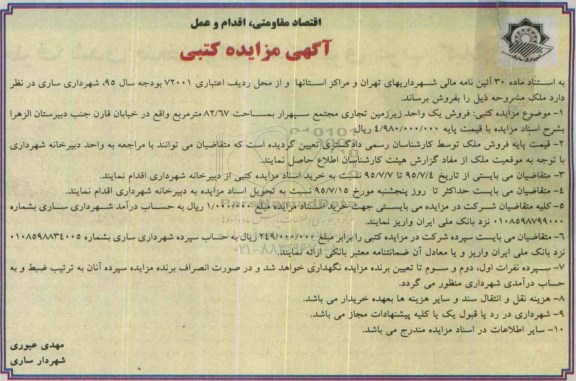 اقتصاد مقاومتی، اقدام و عمل
آگهی مزایده کتبی
به استناد ماده ۳۰ آئین نامه مالی شهرداریهای تهران و مراکز استانها و از محل ردیف اعتباری ۷۲۰۰۱ بودجه سال ۹۵، شهرداری ساری در نظر
دارد ملک مشروحه ذیل را بفروش برساند.
۱- موضوع مزایده کتبی: فروش یک واحد زیرزمین تجاری مجتمع سپهرار بمساحت ۸۲/۶۷ مترمربع واقع در خیابان قارن جنب دبیرستان الزهرا
بشرح اسناد مزایده با قیمت پایه ۴/۹۸۰/۰۰۰/۰۰۰ ریال
۲- قیمت پایه فروش ملک توسط کارشناسان رسمی دادگستری تعیین گردیده است که متقاضیان می توانند با مراجعه به واحد دبیرخانه شهرداری
با توجه به موقعیت ملک از مفاد گزارش هیئت کارشناسان اطلاع حاصل نمایند.
۳- متقاضیان می بایستی از تاریخ ۹۵/۷/۴ تا ۹۵/۷/۷ نسبت به خرید اسناد مزایده کتبی از دبیرخانه شهرداری اقدام نمایند.
۴- متقاضیان می بایست حداکثر تا روز پنجشنبه مورخ ۹۵/۷/۱۵ نسبت به تحویل اسناد مزایده به دبیرخانه شهرداری اقدام نمایند.
۵- کلیه متقاضیان شرکت در مزایده می بایستی جهت خرید اسناد مزایده مبلغ ۱/۰۰۰/۰۰۰ ریال به حساب درآمد شهرداری ساری بشماره
۰۱۰۸۵۹۸۷۹۹۰۰۰ نزد بانک ملی ایران واریز نمایند.
۶- متقاضیان می بایست سپرده شرکت در مزایده کتبی را برابر مبلغ ۲۴۹/۰۰۰/۰۰۰ ریال به حساب سپرده شهرداری ساری بشماره ۰۱۰۸۵۹۸۸۳۴۰۰۵
نزد بانک ملی ایران واریز و یا معادل آن ضمانتنامه معتبر بانکی ارائه نمایند.
۷- سپرده نفرات اول، دوم و سوم تا تعیین برنده مزایده نگهداری خواهد شد و در صورت انصراف برنده مزایده سپرده آنان به ترتیب ضبط و به
حساب درآمدی شهرداری منظور می گردد.
۸- هزینه نقل و انتقال سند و سایر هزینه ها بعهده خریدار می باشد.
۹- شهرداری در رد یا قبول یک یا کلیه پیشنهادات مجاز می باشد.
۱۰- سایر اطلاعات در اسناد مزایده مندرج می باشد.
مهدی عبوری
شهردار ساری